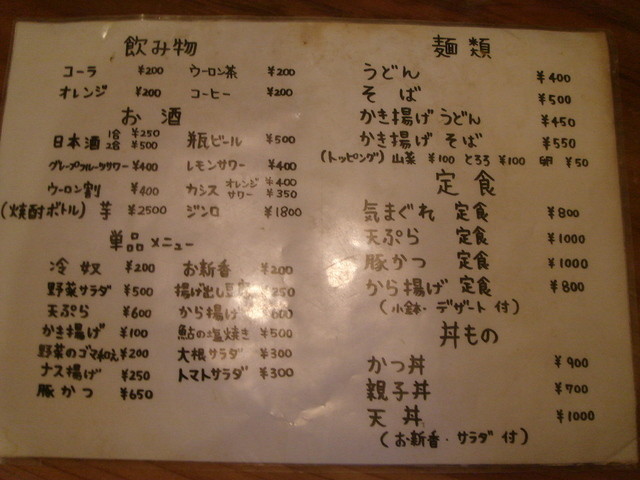 飲み物
コーラ ¥200 ウーロン茶 ¥200
オレンジ ¥200 コーヒー ¥200
お酒
日本酒 1合 ¥250 2合 ¥500 瓶ビール ¥500
グレープフルーツサワー ¥400 レモンサワー ¥400
ウーロン割 ¥400 カシス オレンジ ¥400 サワー ¥350
(焼酎ボトル) 芋 ¥2500 ジンロ ¥1800
単品メニュー
冷奴 ¥200 お新香 ¥200
野菜サラダ ¥500 揚げ出し豆腐 ¥250
天ぷら ¥600 から揚げ ¥600
かき揚げ ¥100 鮎の塩焼き ¥500
野菜のゴマ和え ¥200 大根サラダ ¥300
ナス揚げ ¥250 トマトサラダ ¥300
豚かつ ¥650
麺類
うどん ¥400
そば ¥500
かき揚げうどん ¥450
かき揚げそば ¥550
(トッピング) 山菜 ¥100 とろろ ¥100 卵 ¥50
定食
気まぐれ 定食 ¥800
天ぷら 定食 ¥1000
豚かつ 定食 ¥1000
から揚げ 定食 ¥800
(小鉢・デザート 付)
丼もの
かつ丼 ¥900
親子丼 ¥700
天丼 ¥1000
(お新香・サラダ 付)